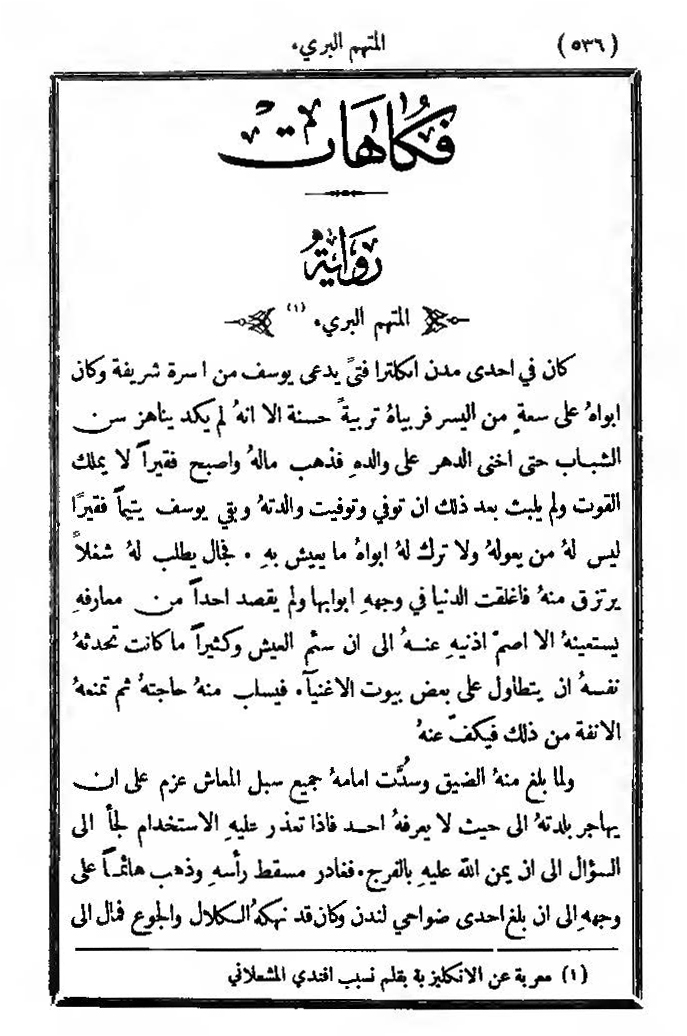 (٥٣٦) المتهم البريء
فكاهات
رواية
المتهم البريء (١)
كان في احدى مدن انكلترا فتىً يدعى يوسف من اسرة شريفة وكان
ابواهُ على سعةٍ من اليسر فربياهُ تربيةً حسنة الا انهُ لم يكد يناهز سن
الشباب حتى اخنى الدهر على والدهِ فذهب مالهُ واصبح فقيراً لا يملك
القوت ولم يلبث بعد ذلك ان توفي وتوفيت والدتهُ وبقي يوسف يتيماً فقيرًا
ليس لهُ من يعولهُ ولا ترك لهُ ابواهُ ما يعيش بهِ ٠ فجال يطلب لهُ شغلاً
يرتزق منهُ فاغلقت الدنيا في وجههِ ابوابها ولم يقصد احداً من معارفهِ
يستعينهُ الا اصمّ اذنيهِ عنهُ الى ان سئم العيش وكثيراً ما كانت تحدثهُ
نفسهُ ان يتطاول على بعض بيوت الاغنيآء فيسلب منهُ حاجتهُ ثم تمنعهُ
الانفة من ذلك فيكفّ عنهُ
ولما بلغ منهُ الضيق وسُدَّت امامهُ جميع سبل المعاش عزم على ان
يهاجر بلدتهُ الى حيث لا يعرفهُ احد فاذا تعذر عليهِ الاستخدام لجأ الى
السؤال الى ان يمن الله عليهِ بالفرج ٠ فغادر مسقط رأسهِ وذهب هائماً على
وجههِ الى ان بلغ احدى ضواحي لندن وكان قد نهكهُ الكلال والجوع فمال الى
(١) معربة عن الانكليزية بقلم نسيب افندي المشعلاني